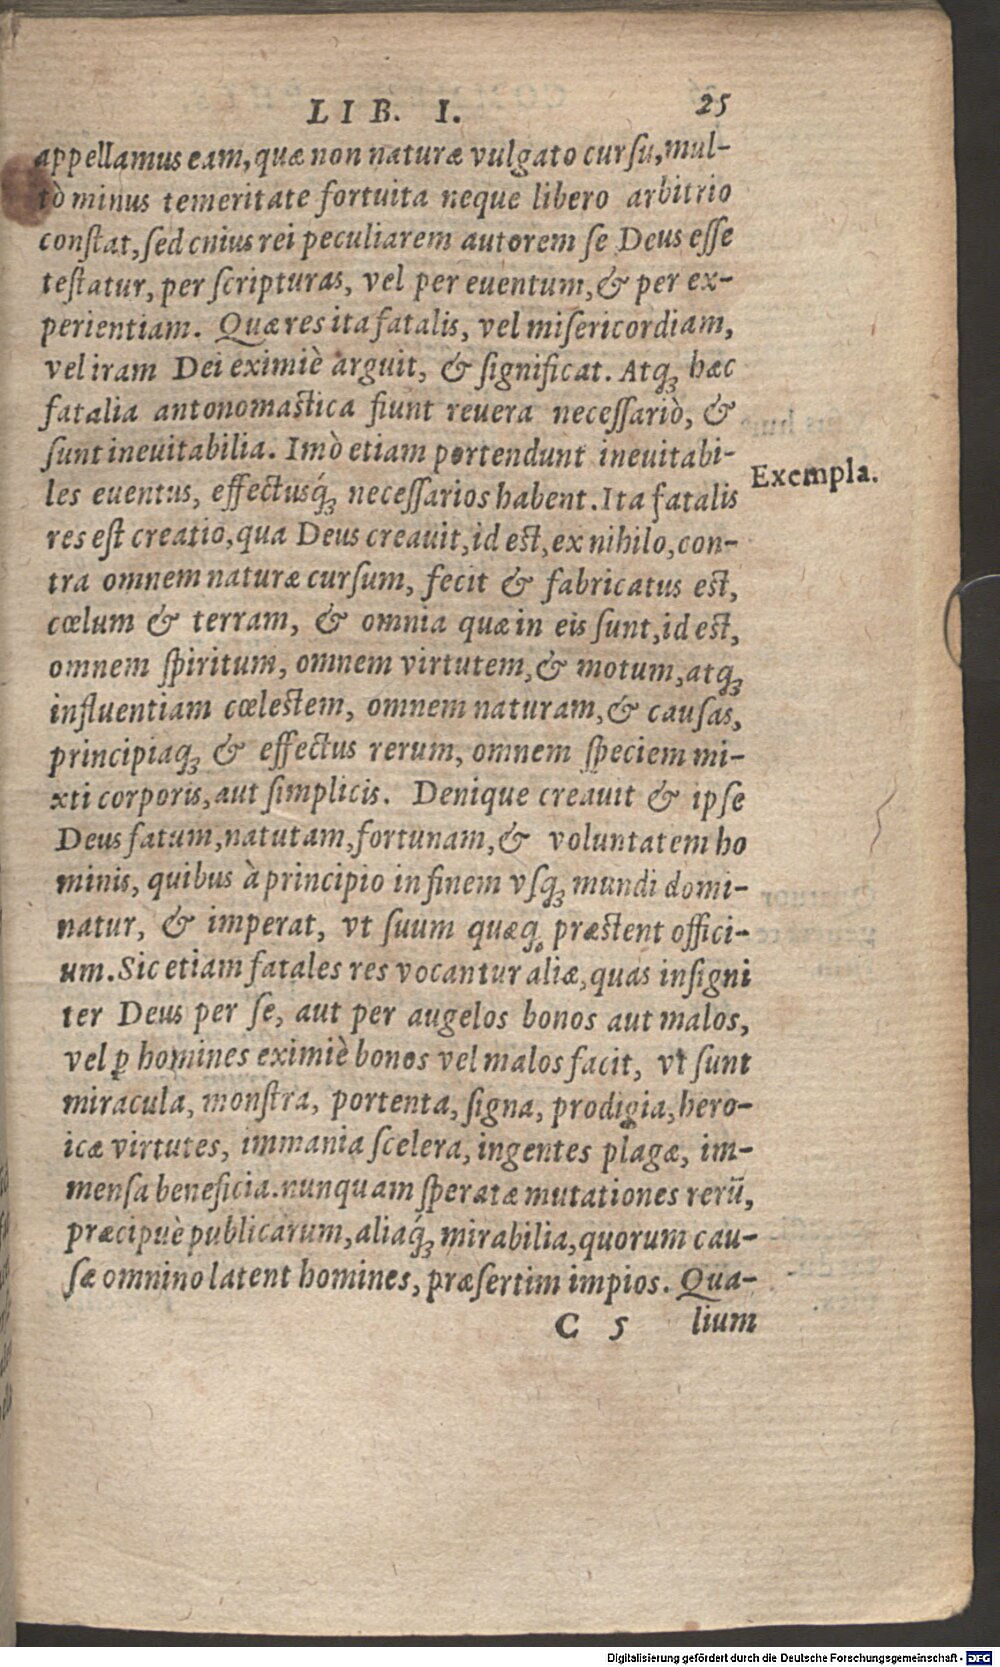 LIB. I. 25
appellamus eam, quæ non naturæ vulgato cursu, mul-
tò minus temeritate fortuita neque libero arbitrio
constat, sed cuius rei peculiarem autorem se Deus esse
testatur, per scripturas, vel per euentum, & per ex-
perientiam. Quæ res ita fatalis, vel misericordiam,
vel iram Dei eximiè arguit, & significat. Atq; hæc
fatalia antonomastica fiunt reuera necessariò, &
sunt ineuitabilia. Imò etiam portendunt ineuitabi-
Exempla.
les euentus, effectusq́; necessarios habent. Ita fatalis
res est creatio, qua Deus creauit, id est, ex nihilo, con-
tra omnem naturæ cursum, fecit & fabricatus est,
cœlum & terram, & omnia quæ in eis sunt, id est,
omnem spiritum, omnem virtutem, & motum, atq;
influentiam cœlestem, omnem naturam, & causas,
principiaq; & effectus rerum, omnem speciem mi-
xti corporis, aut simplicis. Denique creauit & ipse
Deus fatum, natutam, fortunam, & voluntatem ho
minis, quibus à principio in finem vsq; mundi domi-
natur, & imperat, vt suum quæq; præstent offici-
um. Sic etiam fatales res vocantur aliæ, quas insigni
ter Deus per se, aut per augelos bonos aut malos,
vel ꝑ homines eximiè bonos vel malos facit, vt sunt
miracula, monstra, portenta, signa, prodigia, hero-
icæ virtutes, immania scelera, ingentes plagæ, im-
mensa beneficia. nunquam speratæ mutationes rerū,
præcipuè publicarum, aliaq́; mirabilia, quorum cau-
sæ omnino latent homines, præsertim impios. Qua-
C 5 lium
Digitalisierung gefördert durch die Deutsche Forschungsgemeinschaft - DFG